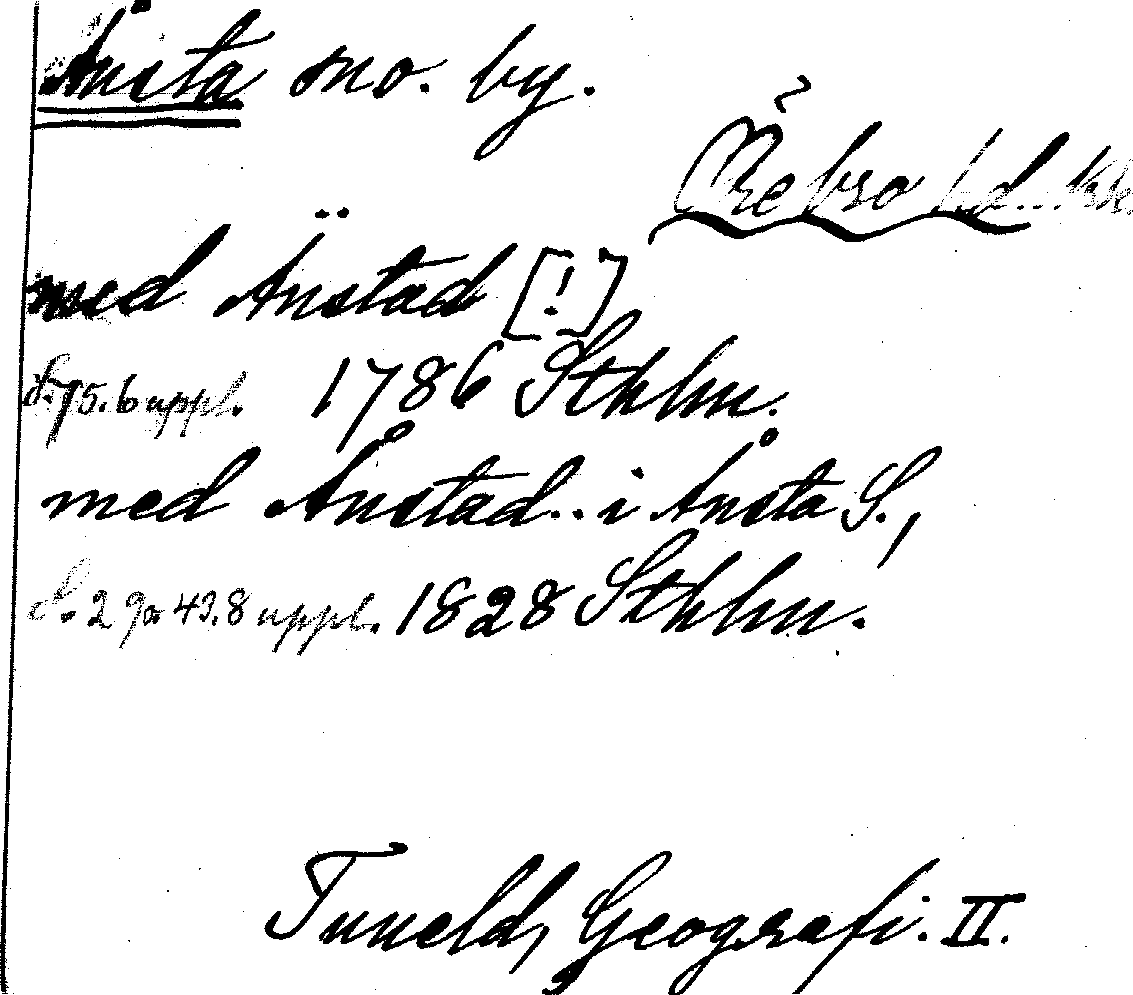 Ånsta sno. by.
Örebro hd...kk.
med Änstad [!]
s. 75. 6 uppl. 1786 Sthlm.
med Ånstad.. i Ånsta S.,
s. 2 go 43. 8 uppl. 1828 Sthlm.
Tuneld, Geografi. II.